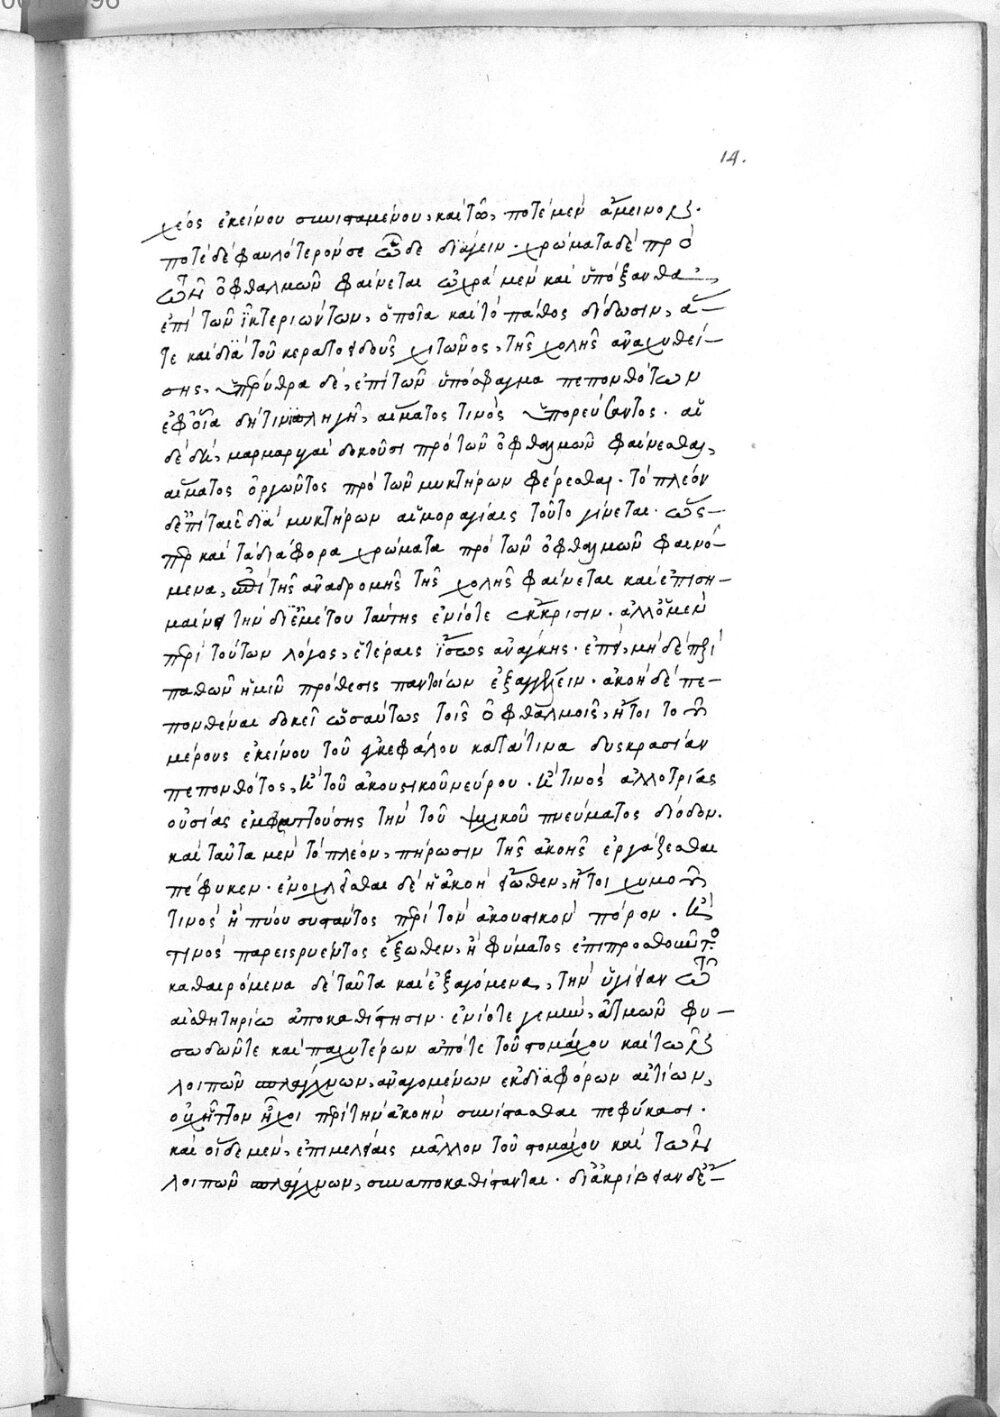 14.
χεὸς ἐκείνου συνισταμένου, καὶ τῶ, ποτὲ μὲν ἄμεινον.
ποτὲ δὲ φαυλότερον ὧδε διάγειν. χρώματα δὲ πρὸ
τῶν ὀφθαλμῶν φαίνεται ὠχρὰ μὲν καὶ ὑπόξανθα
ἐπὶ τῶν ἰκτεριώντων, ὁποῖα καὶ τὸ πάθος δίδωσιν, ἅ-
τε καὶ διὰ τοῦ κερατοειδοῦς χιτῶνος, τῆς χολῆς ἀναχυθεί-
σης, ὑπέρυθρα δὲ, ἐπὶ τῶν ὑπόσφαγμα πεπονθότων
ἐφ' οἵα δή τινι πληγῆ, αἵματος τινὸς ὑπορεύσαντος. αἱ
δὲ δὴ, μαρμαρυγαὶ δοκοῦσι πρὸ τῶν ὀφθαλμῶν φαίνεσθαι,
αἵματος ὀργῶντος πρὸ τῶν μυκτήρων φέρεσθαι. τὸ πλεόν
δ' ἐπὶ ταῖς διὰ μυκτήρων αἱμοραγίαις τοῦτο γίνεται. ὥς-
περ καὶ τὰ διάφορα χρώματα πρὸ τῶν ὀφθαλμῶν φαινό-
μενα, ἐπὶ τῆς ἀναδρομῆς τῆς χολῆς φαίνεται καὶ ἐπιση-
μαίνει τὴν δι' ἐμέτου ταύτης ἐνίοτε ἔκκρισιν. ἀλλ' ὁ μὲν
περὶ τούτων λόγος, ἑτέραις ἴσως ἀνάγκης. ἐπεὶ, μὴ δὲ περὶ
παθῶν ἡμῖν πρόθεσις παντοίων ἐξαγγέλλειν. ἀκοὴ δὲ πε-
πονθέναι δοκεῖ ὡσαύτως τοῖς ὀφθαλμοῖς, ἤτοι τοῦ
μέρους ἐκείνου τοῦ ἐγκεφάλου κατά τινα δυσκρασίαν
πεπονθότος, ἢ τοῦ ἀκουστικοῦ νεύρου. ἢ τινὸς ἀλλοτρίας
οὐσίας ἐμφραττούσης τὴν τοῦ ψυχικοῦ πνεύματος δίοδον.
καὶ ταῦτα μὲν τὸ πλεόν, πήρωσιν τῆς ἀκοῆς ἐργάζεσθαι
πέφυκεν. ἐνοχλεῖσθαι δὲ ἡ ἀκοὴ εἴωθεν, ἤτοι χυμοῦ
τινὸς ἢ πύου συστάντος περὶ τὸν ἀκουστικὸν πόρον. ἢ
τινὸς παρεισρυέντος ἔξωθεν, ἢ φύματος ἐπιπροσθοῦντος.
καθαιρόμενα δὲ ταῦτα καὶ ἐξαγόμενα, τὴν ὑγίειαν τῶ
αἰσθητηρίω ἀποκαθίστησιν. ἐνίοτε γε μὴν, ἀτμῶν φυ-
σωδῶν τε καὶ παχυτέρων ἀπό τε τοῦ στομάχου καὶ τῶν
λοιπῶν σπλάγχνων, ἀναγομένων ἐκ διαφόρων αἰτίων,
οὐχ ἧττον ἦχοι περὶ τὴν ἀκοὴν συνίστασθαι πεφύκασι.
καὶ οἵδε μὲν, ἐπιμελείαις μᾶλλον τοῦ στομάχου καὶ τῶν
λοιπῶν σπλάγχνων, συναποκαθίστανται. δι' ἀκρίβειαν δὲ